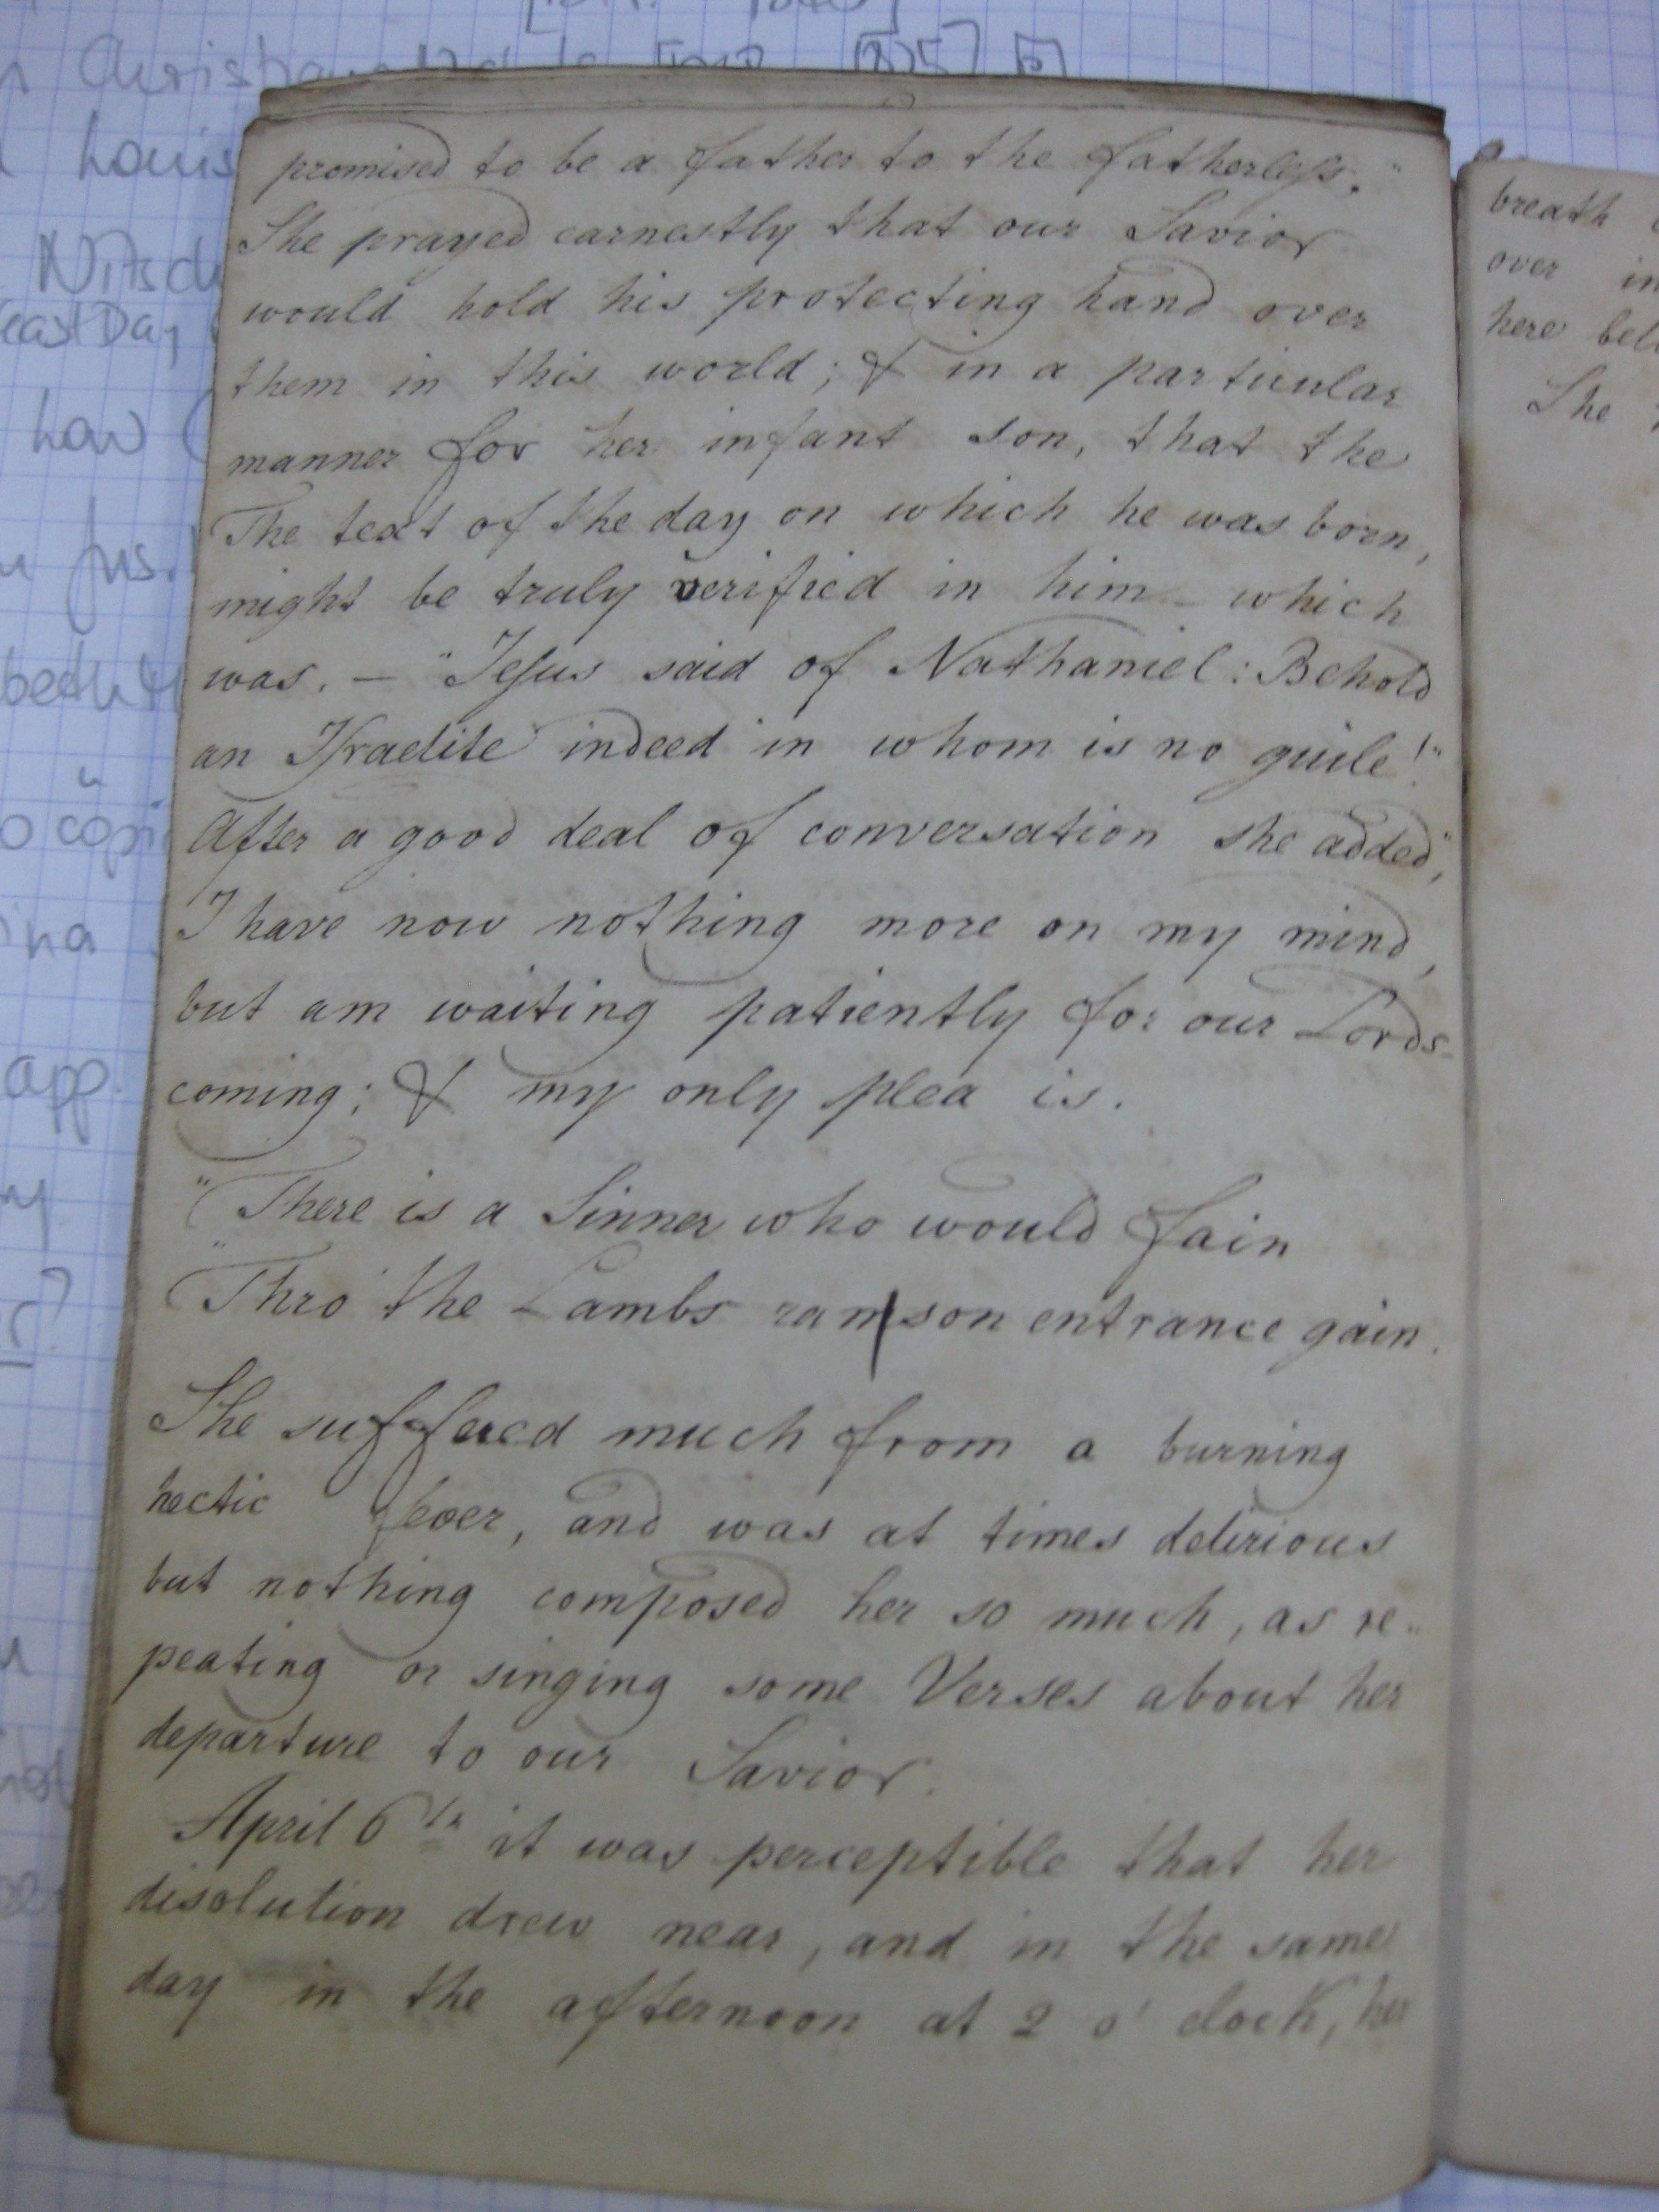 promised to be a father to the fatherless."
She prayed earnestly that our Savior
would hold his protecting hand over
them in this world; & in a particular
manner for her infant son, that the
The text of the day on which he was born,
might be truly verified in him – which
was. – "Jesus said of Nathaniel: Behold
an Israelite indeed in whom is no guile!"
After a good deal of conversation she added,"
I have now nothing more on my mind,
but am waiting patiently for our Lords
coming; & my only plea is.
"There is a Sinner who would fain
"Thro' the Lambs ramson entrance gain.
She suffered much from a burning
hectic fever, and was at times delirious
but nothing composed her so much, as re"
peating or singing some Verses about her
departure to our Savior.
April 6th it was perceptible that her
disolution drew near, and in the same
day in the afternoon at 2 o'clock, her
breath
over in
here bel
She
Louis
Nitsch
east Day
how
app.